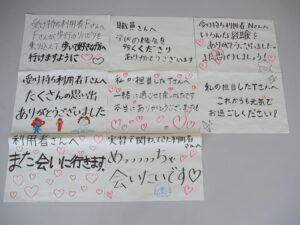 受け持ち利用者Fさんへ
Fさんが歩行のリハビリを
乗り越えて、歩いて好きな所へ
行けますように♡
職員さんへ
学びの機会を
多くくださり
ありがとうございます
受け持ち利用者Nさんへ
いろんな経験を
ありがとうございました。
また会いましょう!
受け持ち利用者Tさんへ
たくさんの思い出
ありがとうございました
私の担当したTさんへ
一緒に過ごせて楽しかったです
本当にありがとうございました
私の担当したTさんへ
これからも元気で
お過ごしください!
利用者さんへ
また会いに行きます。
実習で関わってくださった利用者さんへ
めっっっっちゃ
会いたいです♡